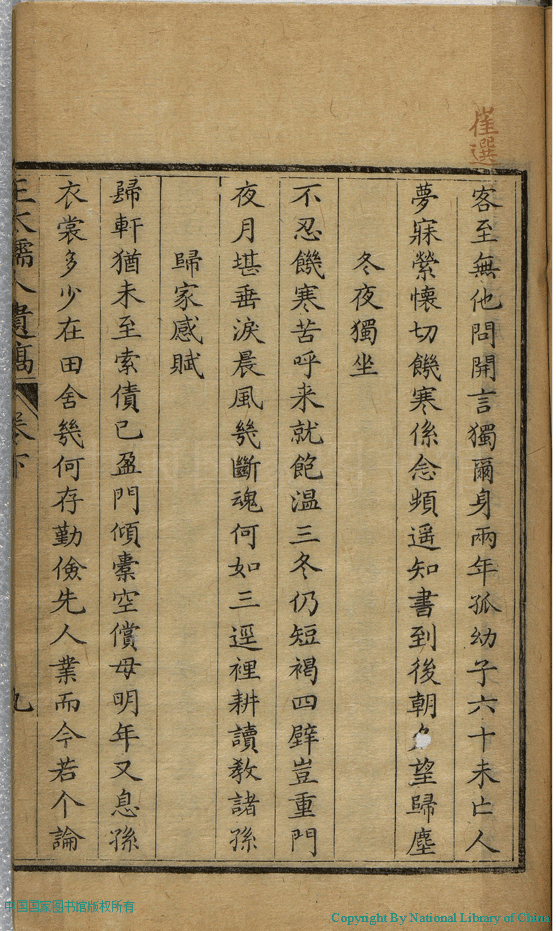 崔選
客至無他問開言獨爾身兩年孤幼子六十未亡人
夢寐縈懷切饑寒係念頻遥知書到後朝夕望歸塵
冬夜獨坐
不忍饑寒苦呼来就飽温三冬仍短褐四壁豈重門
夜月堪垂淚晨風幾斷魂何如三逕裡耕讀教諸孫
歸家感賦
歸軒猶未至索債已盈門傾橐空償母明年又息孫
衣裳多少在田舍幾何存勤儉先人業而今若个論
王太孺人遺稿
卷下
九
中国国家图书馆版权所有
Copyright By National Library of China